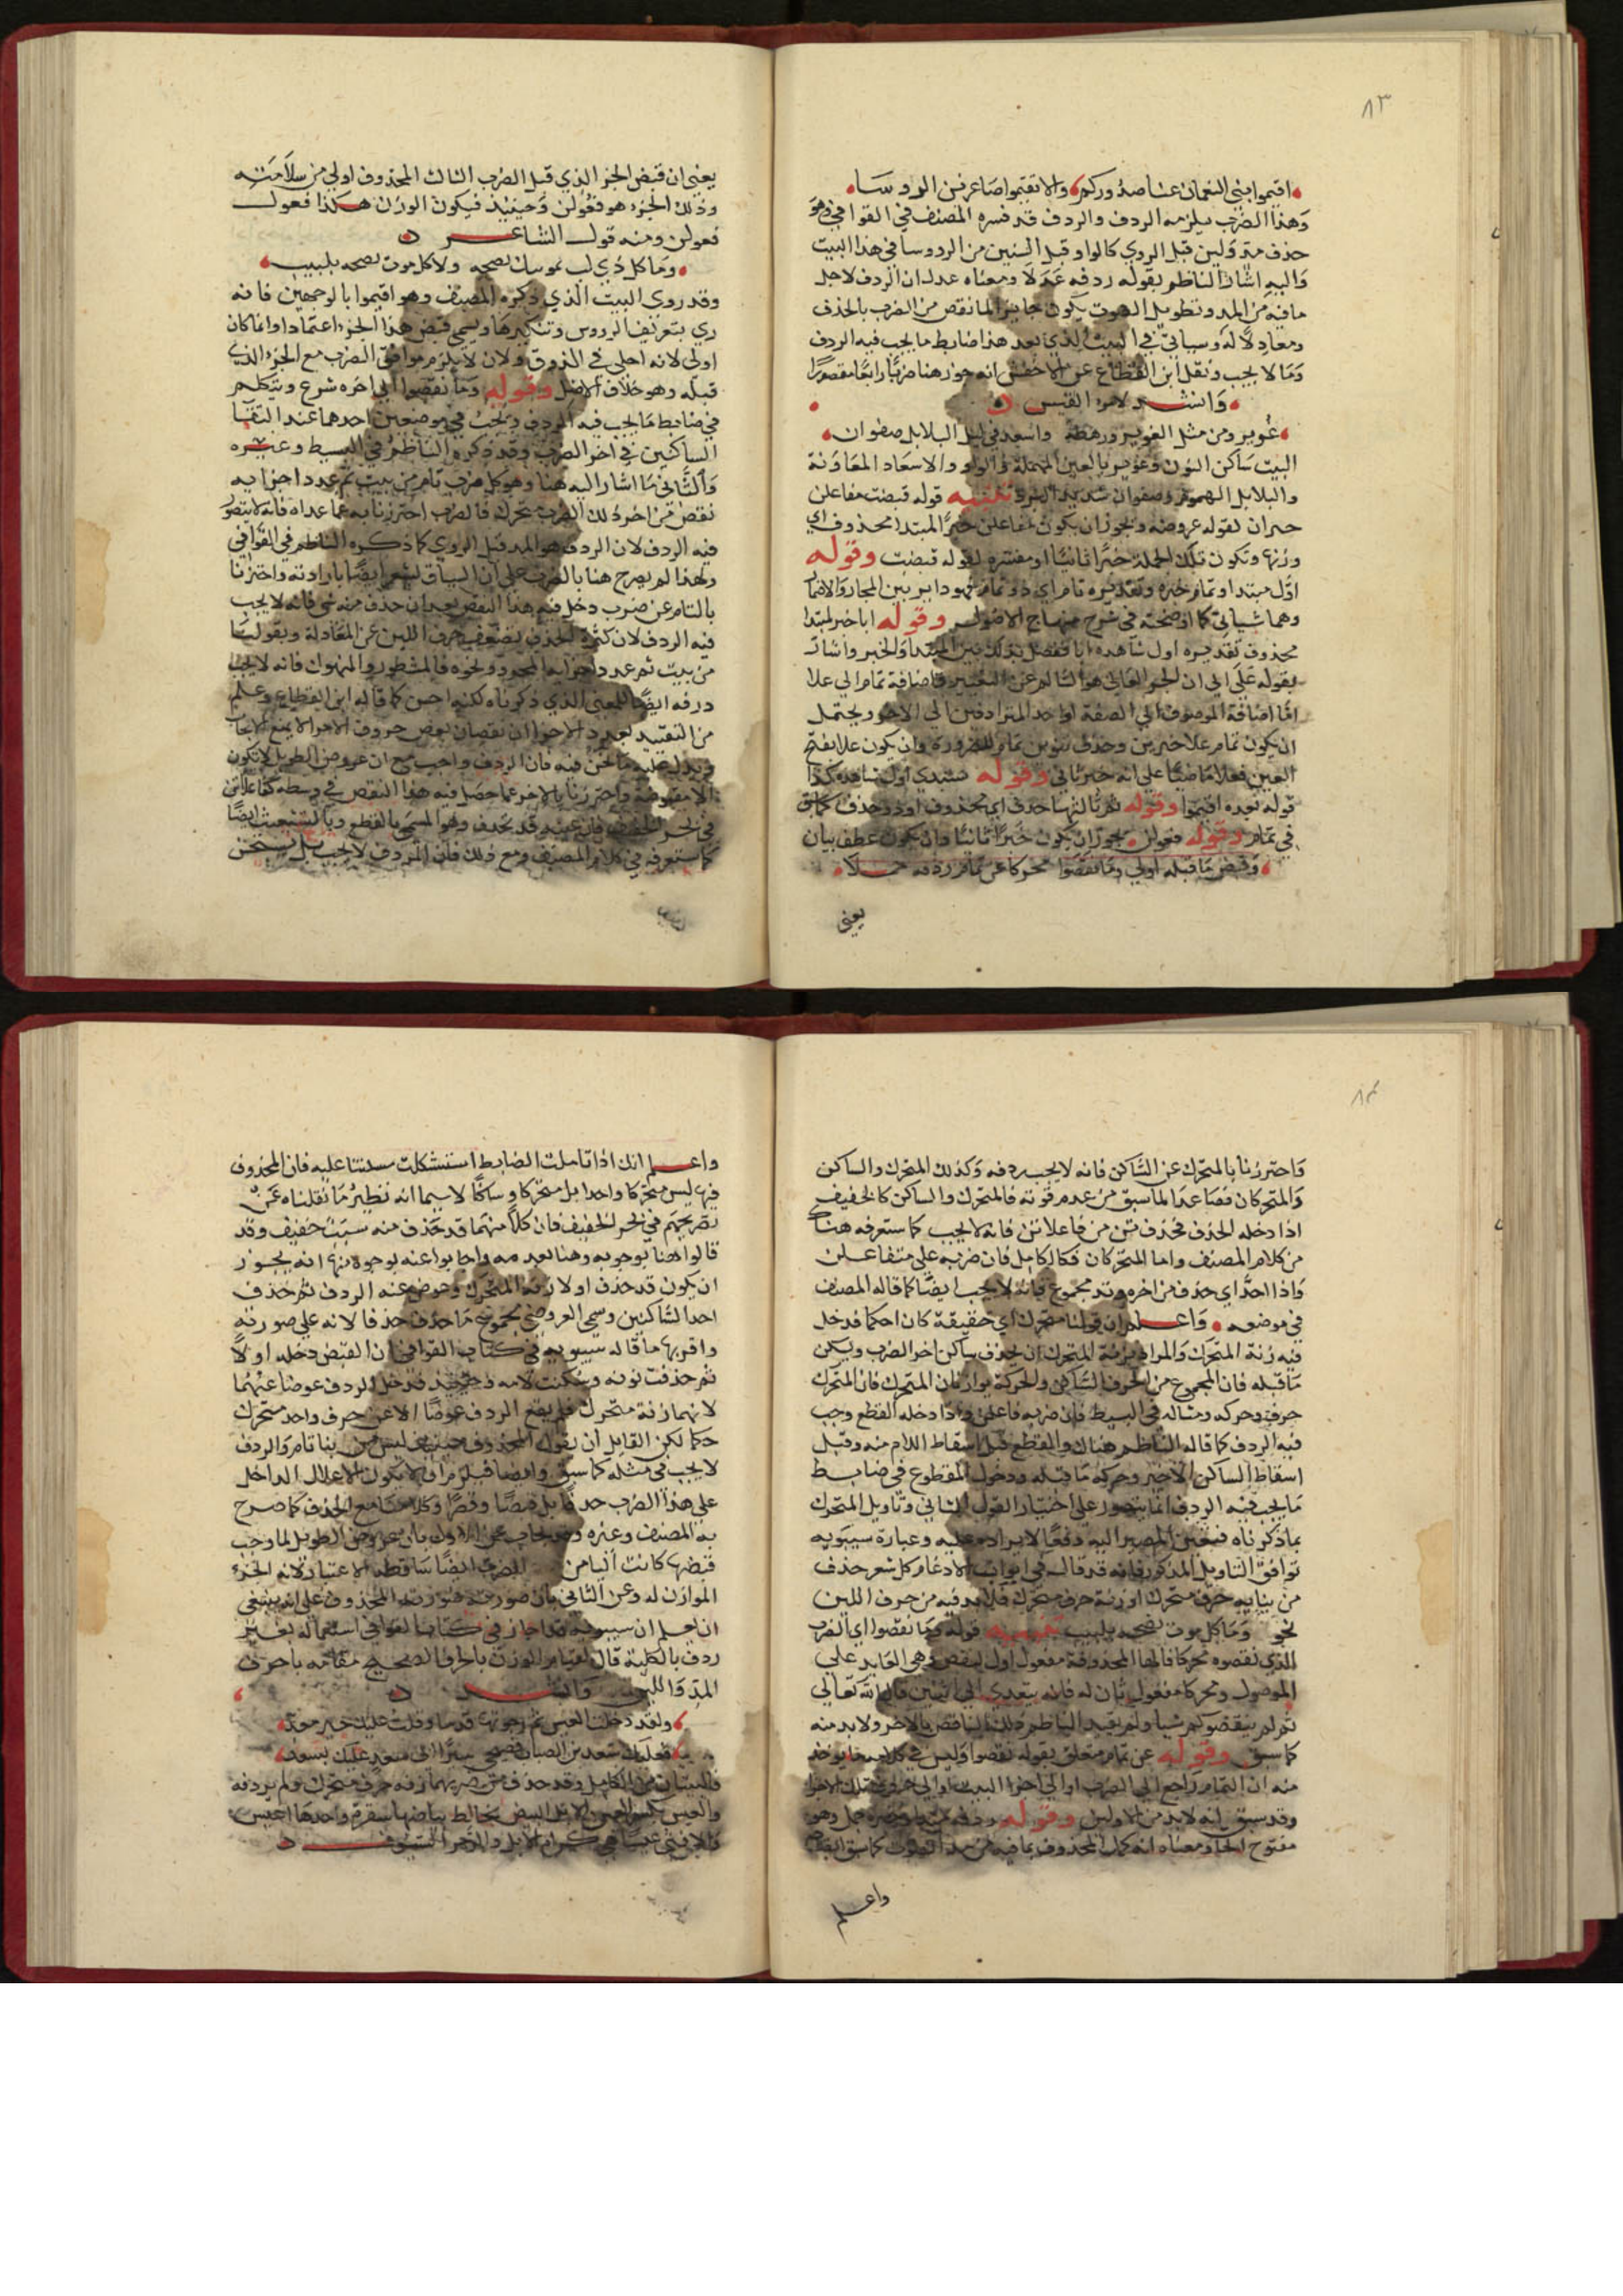 ٨٣
اقيموا بني النعمان عنا صدوركم والا تقيموا صاغرين الروسا
وهذا الضرب يلزمه الردف والردف قد فسره المصنف في القوافي وهو
حذف مد ولين قبل الروي كالواو قبل السين من الرووسا في هذا البيت
واليه اشار الناظم بقوله ردفه عدلا ومعناه عدل ان الردف لاجل
ما فيه من المد وتطويل الصوت يكون جابرا لما نقص من الضرب بالحذف
ومعادلا له وسياتي في البيت الذي بعد هذا ضابط ما يجب فيه الردف
وما لا يجب ونقل ابن القطاع عن الاخفش انه جوز هنا ضربا رابعا مقصورا
وانشد لامرء القيس
عوير ومن مثل العوير ورهطه واسعد في ليل البلابل صفوان
البيت ساكن النون وعوير بالعين المهملة والواو والاسعاد المعاونة
والبلابل الهموم وصفوان شديد البرد تنبيه قوله قبضت مفاعلن
خبران لقوله عروضه ويجوز ان يكون مفاعلن خبر المبتدا محذوف اي
وزنها وتكون تلك الجملة خبرا ثانيا او مفسره لقوله قبضت وقوله
اول مبتدا وتمام خبره وتقديره تام اي ذو تمام فهو دائر بين المجاز والاضمار
وهما سيان كما اوضحته في شرح منهاج الاصول وقوله ابا خبر لمبتدا
محذوف تقديره اول شاهده ابا ففصل بذلك بين المبتدا والخبر واشار
بقوله على الى ان الجزء العالي هو السالم عن التغيير فاضافة تمام الى علا
اما اضافة الموصوف الى الصفة او احد المترادفين الى الاخر ويحتمل
ان يكون تمام علا خبرين وحذف تنوين تمام للضرورة وان يكون علا بفتح
العين فعلا ماضيا على انه خبر ثاني وقوله ستبدي اول شاهده كذا
قوله بعده اقيموا وقوله ثمرتالثها حذف اي محذوف او ذو حذف كما سبق
في تمام وقوله فعولن يجوز ان يكون خبرا ثانيا وان يكون عطف بيان
وقبض ما قبله اولى وما نقصوا محركا عن تمام ردفه حملا
يعني
يعني ان قبض الجزء الذي قبل الضرب الثالث المحذوف اولى من سلامته
وذلك الجزء هو فعولن وحينيذ فيكون الوزن هكذا فعول
فعولن ومنه قول الشاعر
وما كل ذي لب بموتيك نصحه ولا كل موت نصحه بلبيب
وقد روي البيت الذي ذكره المصنف وهو اقيموا بالوجهين فانه
روي بتعريف الرووس وتنكيرها ويسمى قبض هذا الجزء اعتمادا وانما كان
اولى لانه احلى في الذوق ولان لا يلزم موافق الضرب مع الجزء الذي
قبله وهو خلاف الاصل وقوله وما نقصوا الى اخره شرع يتكلم
في ضابط ما يجب فيه الردف ويجب في موضعين احدهما عند التقا
الساكنين في اخر الضرب وقد ذكره الناظم في البسيط وغيره
والثاني ما اشار اليه هنا وهو كل ضرب تام من بيت تم عدد اجزايه
نقص من اخر ذلك الضرب متحرك فالضرب احترزنا به عما عداه فانه لا يتصور
فيه الردف لان الردف هو المد قبل الروي كما ذكره الناظم في القوافي
ولهذا لم يصرح هنا بالضرب على ان السياق يشعر ايضا بارادته واحترزنا
بالتام عن ضرب دخل فيه هذا النقص بعد ان حذف منه شي فانه لا يجب
فيه الردف لان كثرة الحذف يضعف حرف اللين عن المعادلة وبقولنا
من بيت تم عدد اجزايه المجزوء ونحوه فالمشطور والمنهوك فانه لا يجب
ردفه ايضا للمعنى الذي ذكرناه لكنه احسن كما قاله ابن القطاع وعلم
من التقييد بعدد الاجزا ان نقصان بعض حروف الاجزا لا يمنع الايجاب
ويدل عليه ما نحن فيه فان الردف واجب مع ان عروض الطويل لا تكون
الا مقبوضة واحترزنا بالاخر عما حصل فيه هذا النقص في وسطه كفاعلاتن
في بحر الخفيف فان عينه قد تحذف وهو المسمى بالقطع وبالتشعيث ايضا
كما ستعرفه في كلام المصنف ومع ذلك فان الردف لا يجب بل يستحسن
٨٤
واحترزنا بالمتحرك عن الساكن فانه لا يجب ردفه وكذلك المتحرك والساكن
والمتحركان فصاعدا لما سبق من عدم قوته فالمتحرك والساكن كالخفيف
اذا دخله الحذف فحذف تن من فاعلاتن فانه لا يجب كما ستعرفه هنا
من كلام المصنف واما المتحركان فكالكامل فان ضربه على متفاعلن
واذا احذ اي حذف من اخره وتد مجموع فانه لا يجب ايضا كما قاله المصنف
في موضعه واعلم ان قولنا متحرك اي حقيقة كان احكما فدخل
فيه زنة المتحرك والمراد بزنة المتحرك ان يحذف ساكن اخر الضرب ويسكن
ما قبله فان المجموع من الحرف الساكن والحركة يوازنان المتحرك فان المتحرك
حرف وحركه ومثاله في البسيط فان ضربه فاعلن واذا دخله القطع وجب
فيه الردف كما قاله الناظم هناك والقطع قبل اسقاط اللام منه وقيل
اسقاط الساكن الاخير وحركة ما قبله ودخول المقطوع في ضابط
ما يجب فيه الردف انما يتصور على اختيار القول الثاني وتاويل المتحرك
بما ذكرناه فيتعين المصير اليه دفعا لايراده عليه وعبارة سيبويه
توافق التاويل المذكور فانه قد قال في ابواب الادغام كل شعر حذف
من بنايه حرف متحرك او زنة حرف متحرك فلابد فيه من حرف اللين
نحو وما كل موت نصحه بلبيب تنبيه قوله وما نقصوا اي الضرب
الذي نقصوه محركا فالها المحذوفة مفعول اول لنقص وهي العايد على
الموصول ومحركا مفعول ثان له فانه يتعدى الى اثنين قال الله تعالى
ثم لم ينقصوكم شيا ولم يقيد الناظم ذلك بالناقص بالاخر ولا بد منه
كما سبق وقوله عن تمام متعلق بقوله نقصوا وليس في كلامه ما يوخذ
منه ان التمام راجع الى الضرب او الى اجزا البيت او الى حروف تلك الاجزا
وقد سبق انه لابد من الاولين وقوله ردفه مبتدا وخبره حمل وهو
مفتوح الحا ومعناه انه كمل المحذوف بما فيه من مد الصوت كما سبق
واعلم
واعلم انك اذا تاملت الضابط استشكلت مسلتنا عليه فان المحذوف
فيها ليس متحركا واحدا بل متحركا وساكنا لا سيما انه نظير ما نقلناه عن
تصريحهم في بحر الخفيف فان كلا منهما قد حذف منه سبب خفيف وقد
قالوا هنا بوجوبه وهنا بعدمه واجابوا عنه بوجوه منها انه يجوز
ان يكون قد حذف اولا زنة المتحرك وعوض عنه الردف ثم حذف
احد الساكنين وسمى العروضي مجموع ما حذف حذفا لانه على صورته
واقربها ما قاله سيبويه في كتاب القوافي ان القبض دخله اولا
ثم حذفت نونه وسكنت لامه وحينيذ فدخل الردف عوضا عنهما
لانهما زنة متحرك فلم يقع الردف عوضا الا عن حرف واحد متحرك
حكما لكن القايل ان يقول المحذوف حينيذ ليس من بنا تام والردف
لا يجب في مثله كما سبق وايضا فيلزم ان لا يكون الاعلال الداخل
على هذا الضرب حذفا بل قبضا وقصرا وكلامنا مع الحذف كما صرح
به المصنف وغيره وقد يجاب عن الاول بان عروض الطويل لما وجب
قبضها كانت اليا من الضرب ايضا ساقطة الاعتبار لانه الجزء
الموازن له وعن الثاني بان صورته صورة المحذوف على انه ينبغي
ان تعلم ان سيبويه قد اجاز في كتاب القوافي استعماله بغير
ردف بالكلية قال لقيام الوزن بالحرف الصحيح مقامه باحرف
المد واللين وانشد
ولقد دخلت العيس ثم زجرتها قدما وقلت عليك خير معد
فعليك سعد بن الضباب فسمحي سيرا الى سعد عليك بسعد
فالبيتان من الكامل وقد حذف من ضربهما زنة حرف متحرك ولم يردفه
والعيس بكسر العين الابل البيض يخالط بياضها شقرة واحدها اعيس
والانثى عيسا وهي كرام الابل والزجر السوق